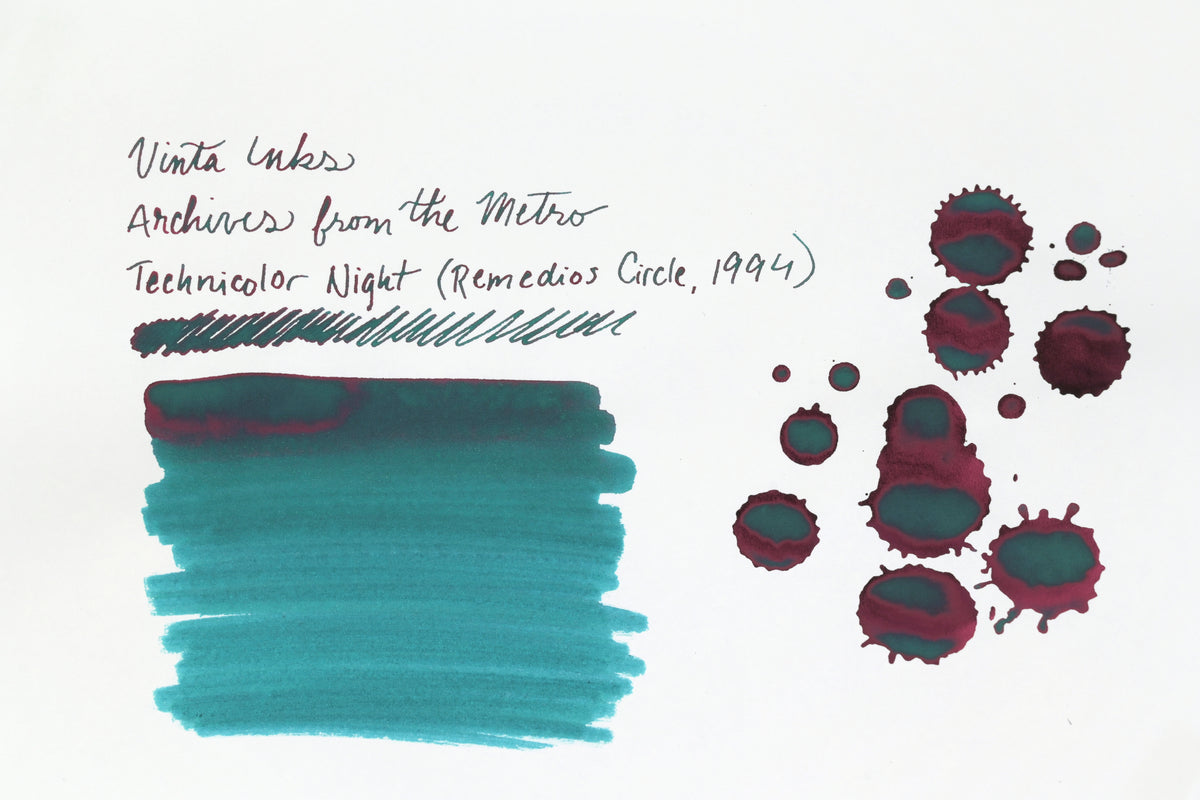 Vinta Inks
Archives from the Metro
Technicolor Night (Remedios Circle, 1994)